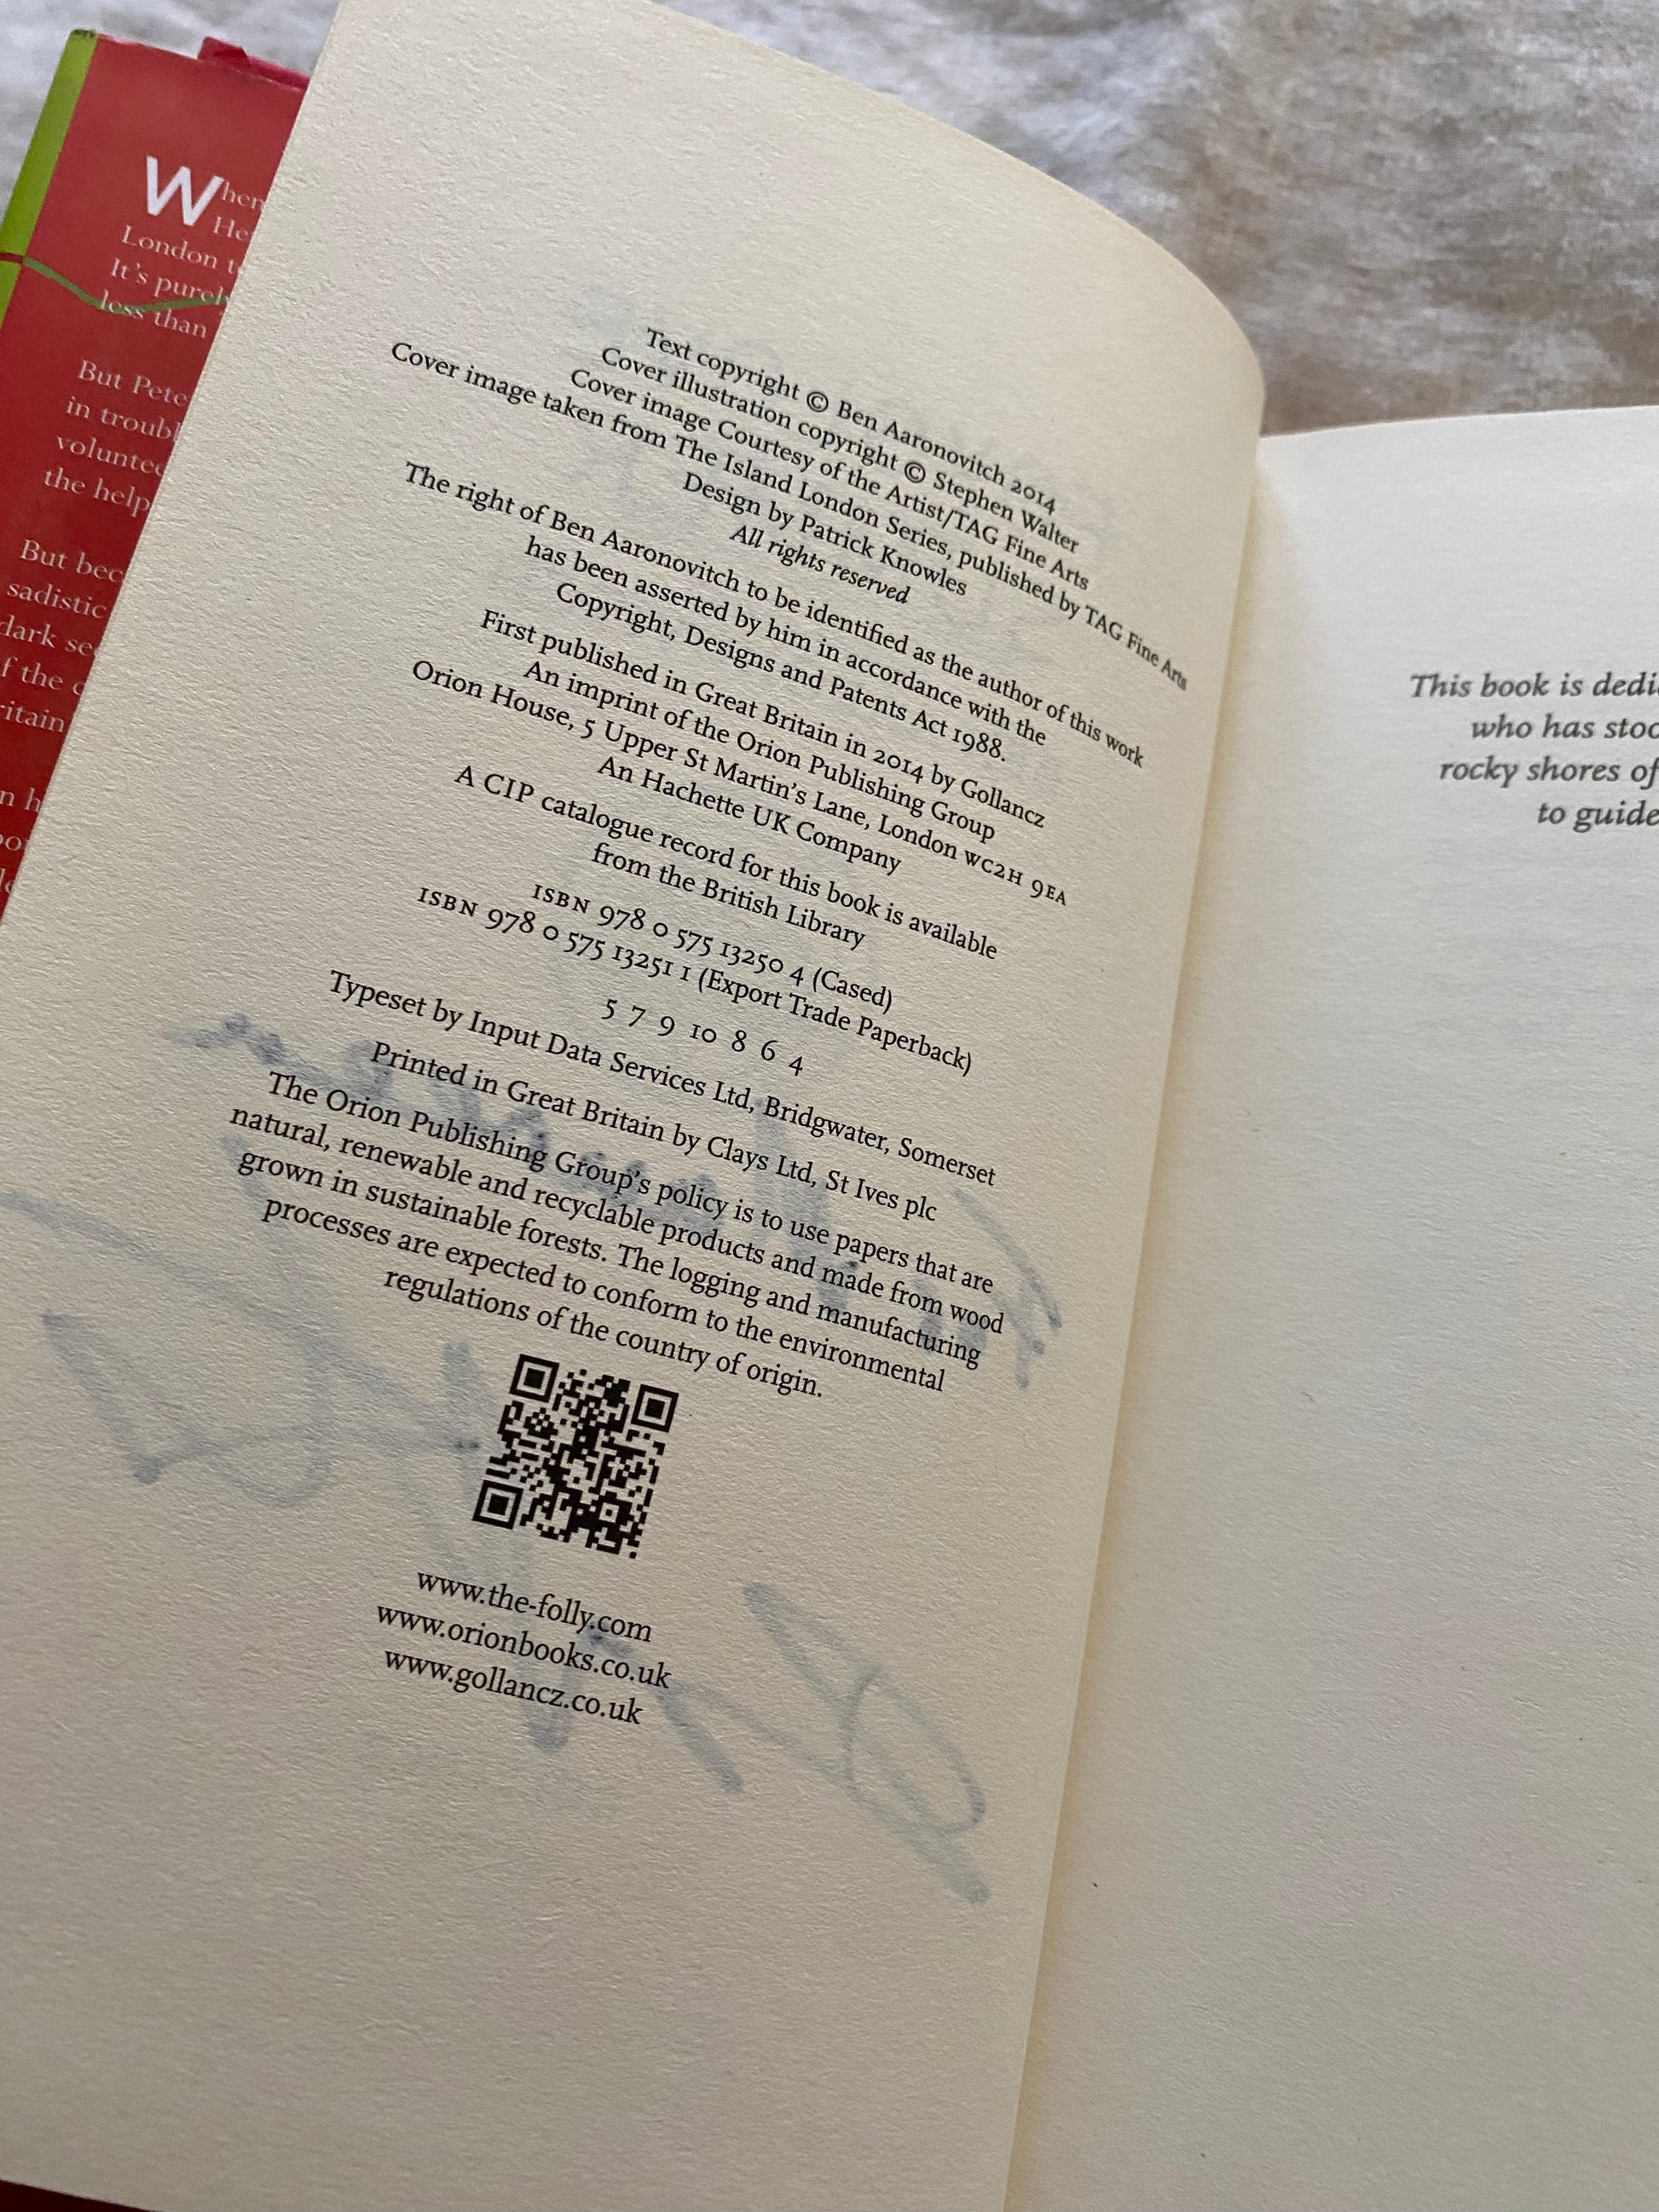 When
He
London t
It's purel
less than
But Pete
in troubl
voluntee
the help
But bec
sadistic
dark se
f the c
ritain
n h
Text copyright © Ben Aaronovitch 2014
Cover illustration copyright © Stephen Walter
Cover image Courtesy of the Artist/TAG Fine Arts
Cover image taken from The Island London Series, published by TAG Fine Arts
Design by Patrick Knowles
All rights reserved
The right of Ben Aaronovitch to be identified as the author of this work
has been asserted by him in accordance with the
Copyright, Designs and Patents Act 1988.
First published in Great Britain in 2014 by Gollancz
An imprint of the Orion Publishing Group
Orion House, 5 Upper St Martin's Lane, London WC2H 9EA
An Hachette UK Company
A CIP catalogue record for this book is available
from the British Library
ISBN 978 0 575 13250 4 (Cased)
ISBN 978 0 575 13251 1 (Export Trade Paperback)
5 7 9 10 8 6 4
Typeset by Input Data Services Ltd, Bridgwater, Somerset
Printed in Great Britain by Clays Ltd, St Ives plc
The Orion Publishing Group's policy is to use papers that are
natural, renewable and recyclable products and made from wood
grown in sustainable forests. The logging and manufacturing
processes are expected to conform to the environmental
regulations of the country of origin.
www.the-folly.com
www.orionbooks.co.uk
www.gollancz.co.uk
This book is dedi
who has stoo
rocky shores of
to guide